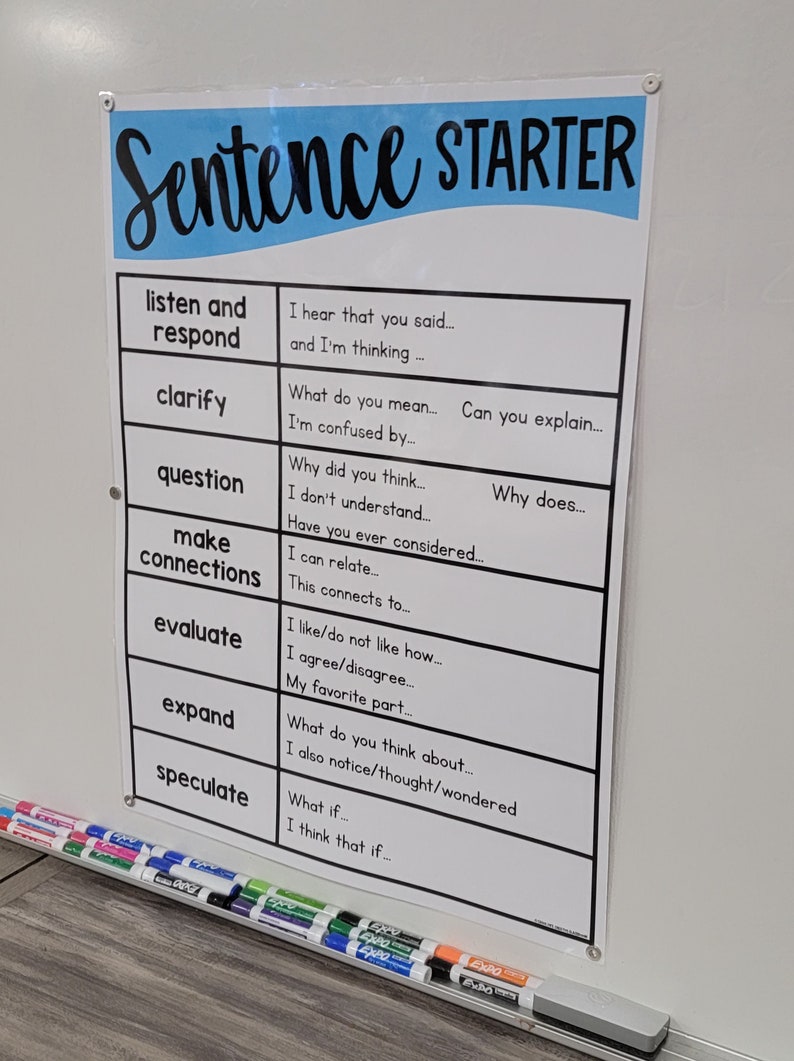 Sentence STARTER
listen and
respond
I hear that you said...
and I'm thinking ...
clarify
What do you mean... Can you explain...
I'm confused by...
question
Why did you think... Why does...
I don't understand...
Have you ever considered...
make
connections
I can relate...
This connects to...
evaluate
I like/do not like how...
I agree/disagree...
My favorite part...
expand
What do you think about...
I also notice/thought/wondered
speculate
What if...
I think that if...
EXPO
EXPO
EXPO
EXPO
EXPO
EXPO
EXPO
EXPO